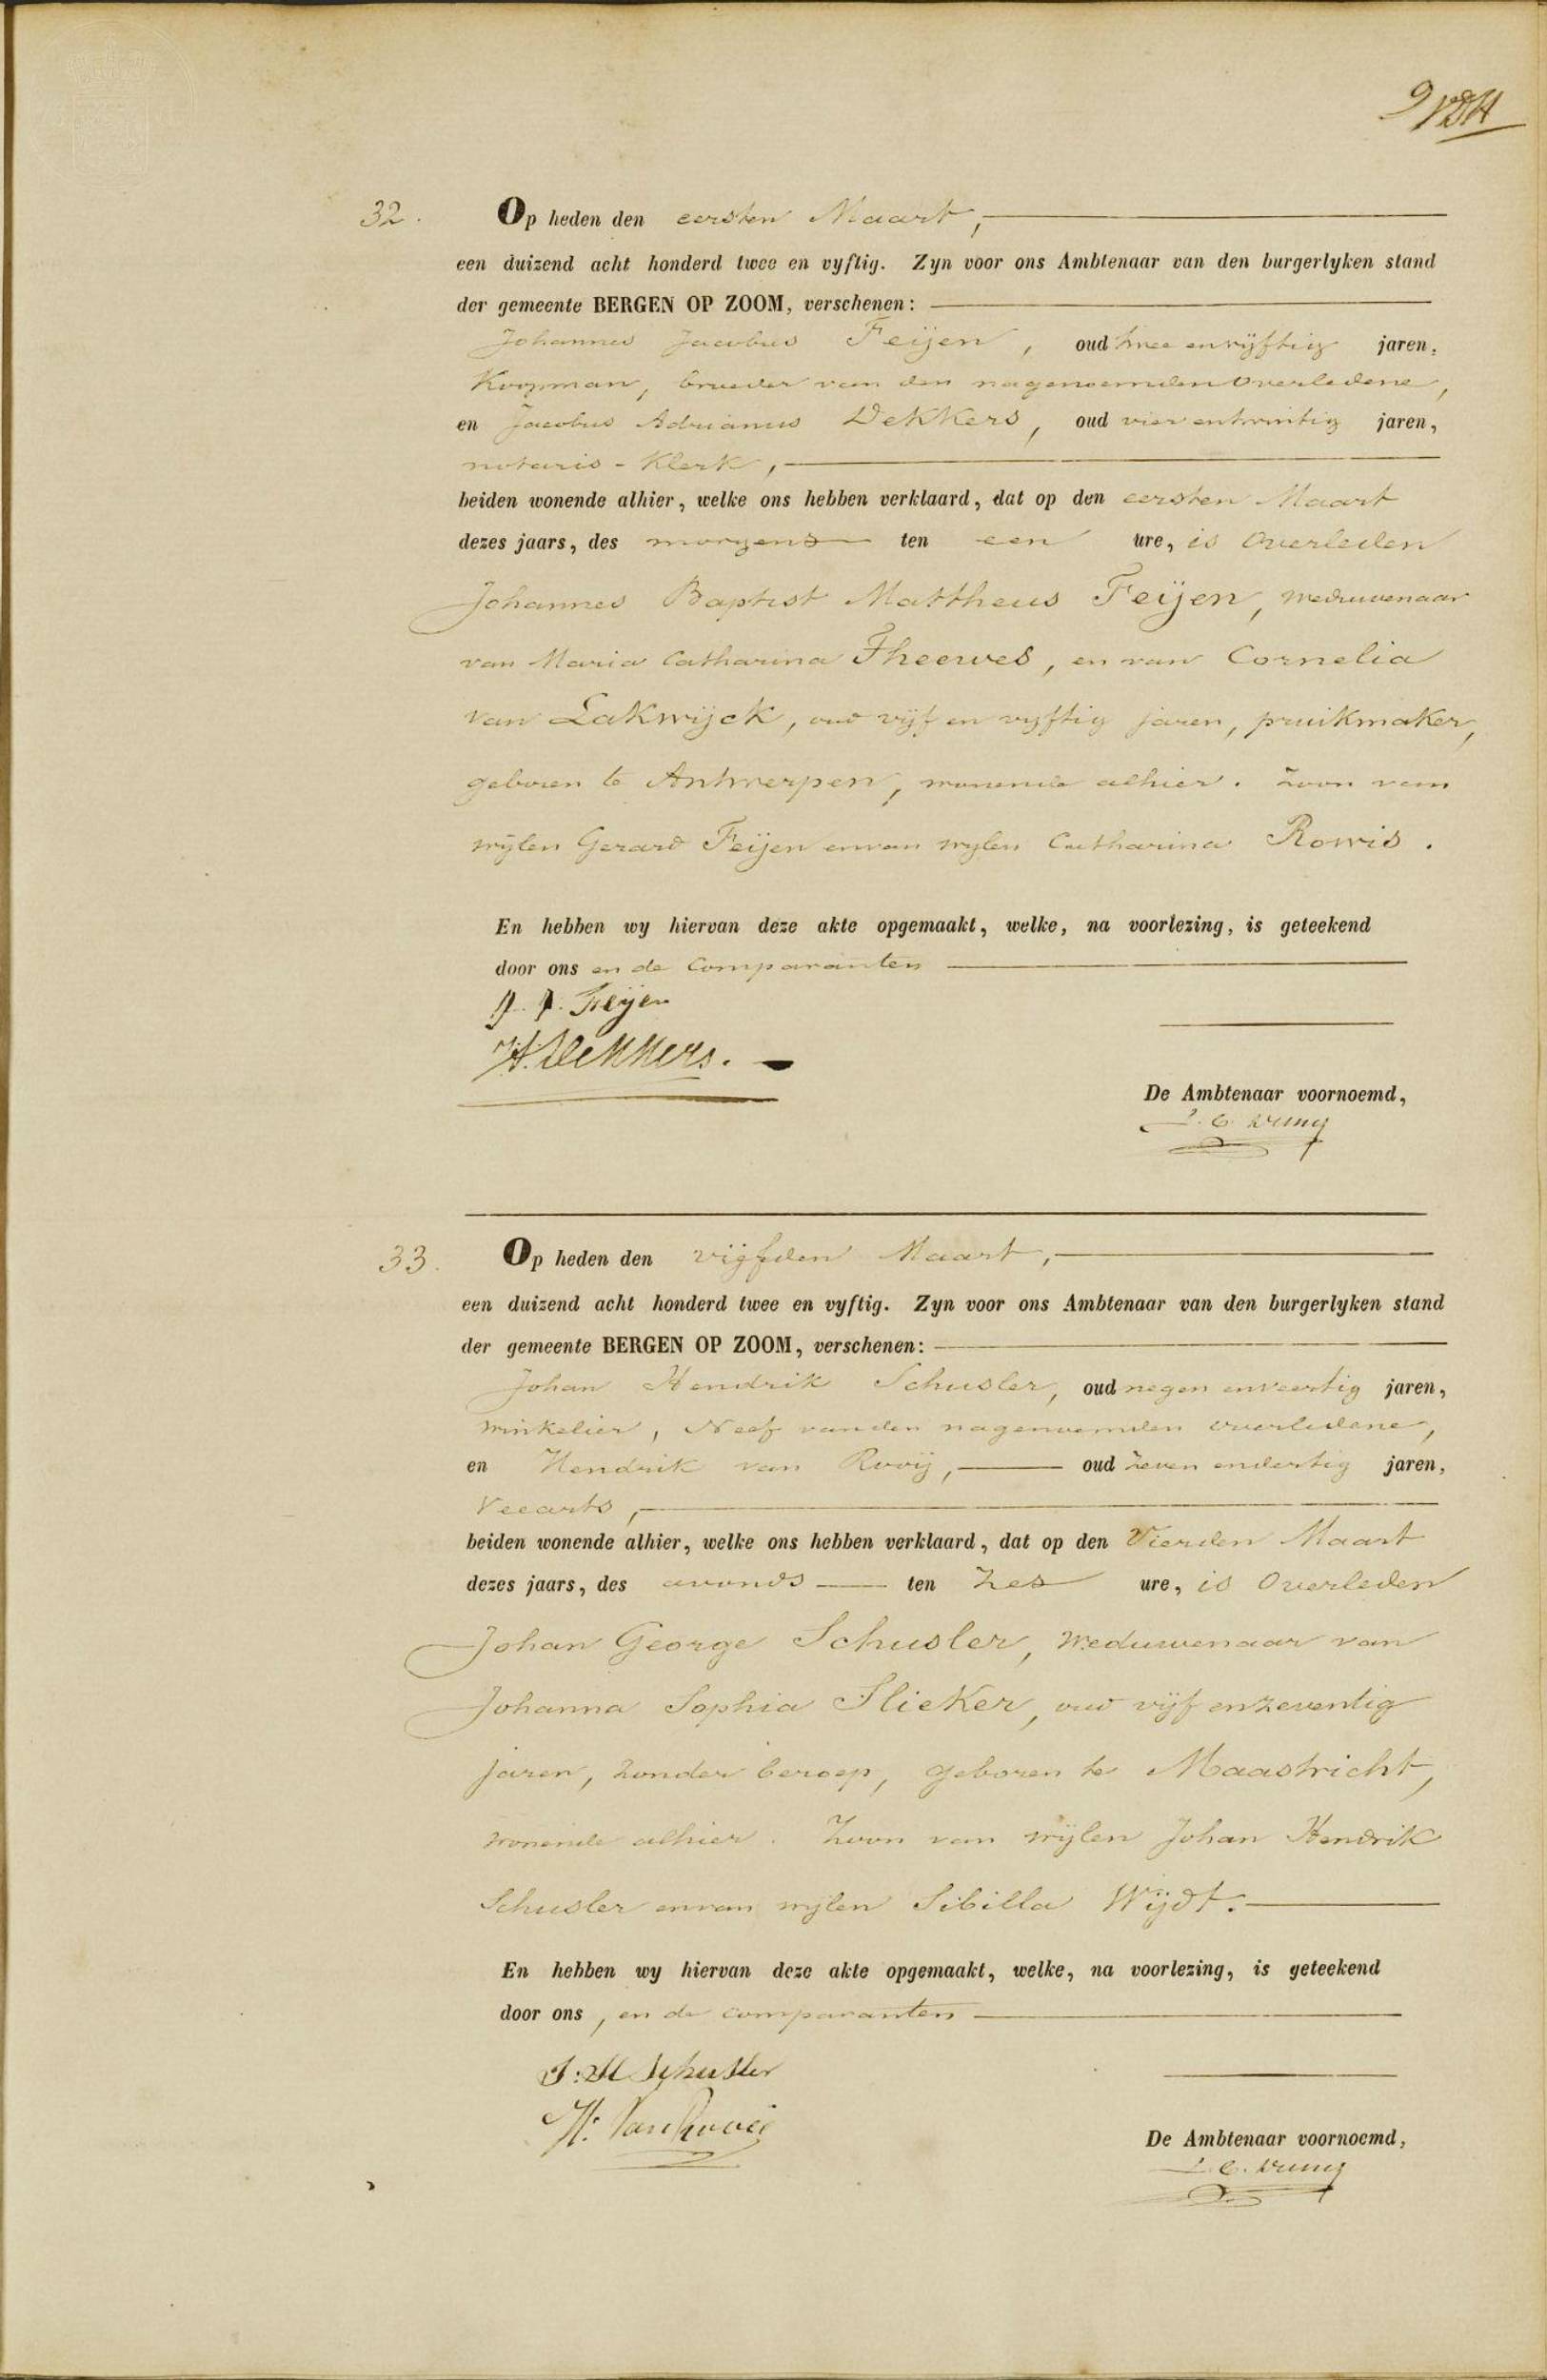 9
32.
Op heden den eersten Maart,
een duizend acht honderd twee en vyftig. Zyn voor ons Ambtenaar van den burgerlyken stand
der gemeente BERGEN OP ZOOM, verschenen:
Johannes Jacobus Feijen, oud twee en vijftig jaren,
Koopman, broeder van den nagenoemden overledene,
en Jacobus Adrianus Dekkers, oud vier entwintig jaren,
notaris-Klerk,
beiden wonende alhier, welke ons hebben verklaard, dat op den eersten Maart
dezes jaars, des morgens ten een ure, is Overleden
Johannes Baptist Mattheus Feijen, weduwenaar
van Maria Catharina Theewes, en van Cornelia
van Lakwijck, oud vijf en vijftig jaren, pruikmaker,
geboren te Antwerpen, wonende alhier. Zoon van
wijlen Gerard Feijen en van wijlen Catharina Rowis.
En hebben wy hiervan deze akte opgemaakt, welke, na voorlezing, is geteekend
door ons en de Comparanten
J. J. Feijen
A. Dekkers.
De Ambtenaar voornoemd,
33.
Op heden den vijfden Maart,
een duizend acht honderd twee en vyftig. Zyn voor ons Ambtenaar van den burgerlyken stand
der gemeente BERGEN OP ZOOM, verschenen:
Johan Hendrik Schusler, oud negen en veertig jaren,
winkelier, Neef van den nagenoemden overledene,
en Hendrik van Rooij, oud zeven en dertig jaren,
Veearts,
beiden wonende alhier, welke ons hebben verklaard, dat op den Vierden Maart
dezes jaars, des avonds ten zes ure, is Overleden
Johan George Schusler, weduwenaar van
Johanna Sophia Slieker, oud vijf en zeventig
jaren, zonder beroep, geboren te Maastricht,
wonende alhier. Zoon van wijlen Johan Hendrik
Schusler en van wijlen Sibilla Wijdt.
En hebben wy hiervan deze akte opgemaakt, welke, na voorlezing, is geteekend
door ons, en de comparanten
J: H Schusler
H: Van Rooij
De Ambtenaar voornoemd,